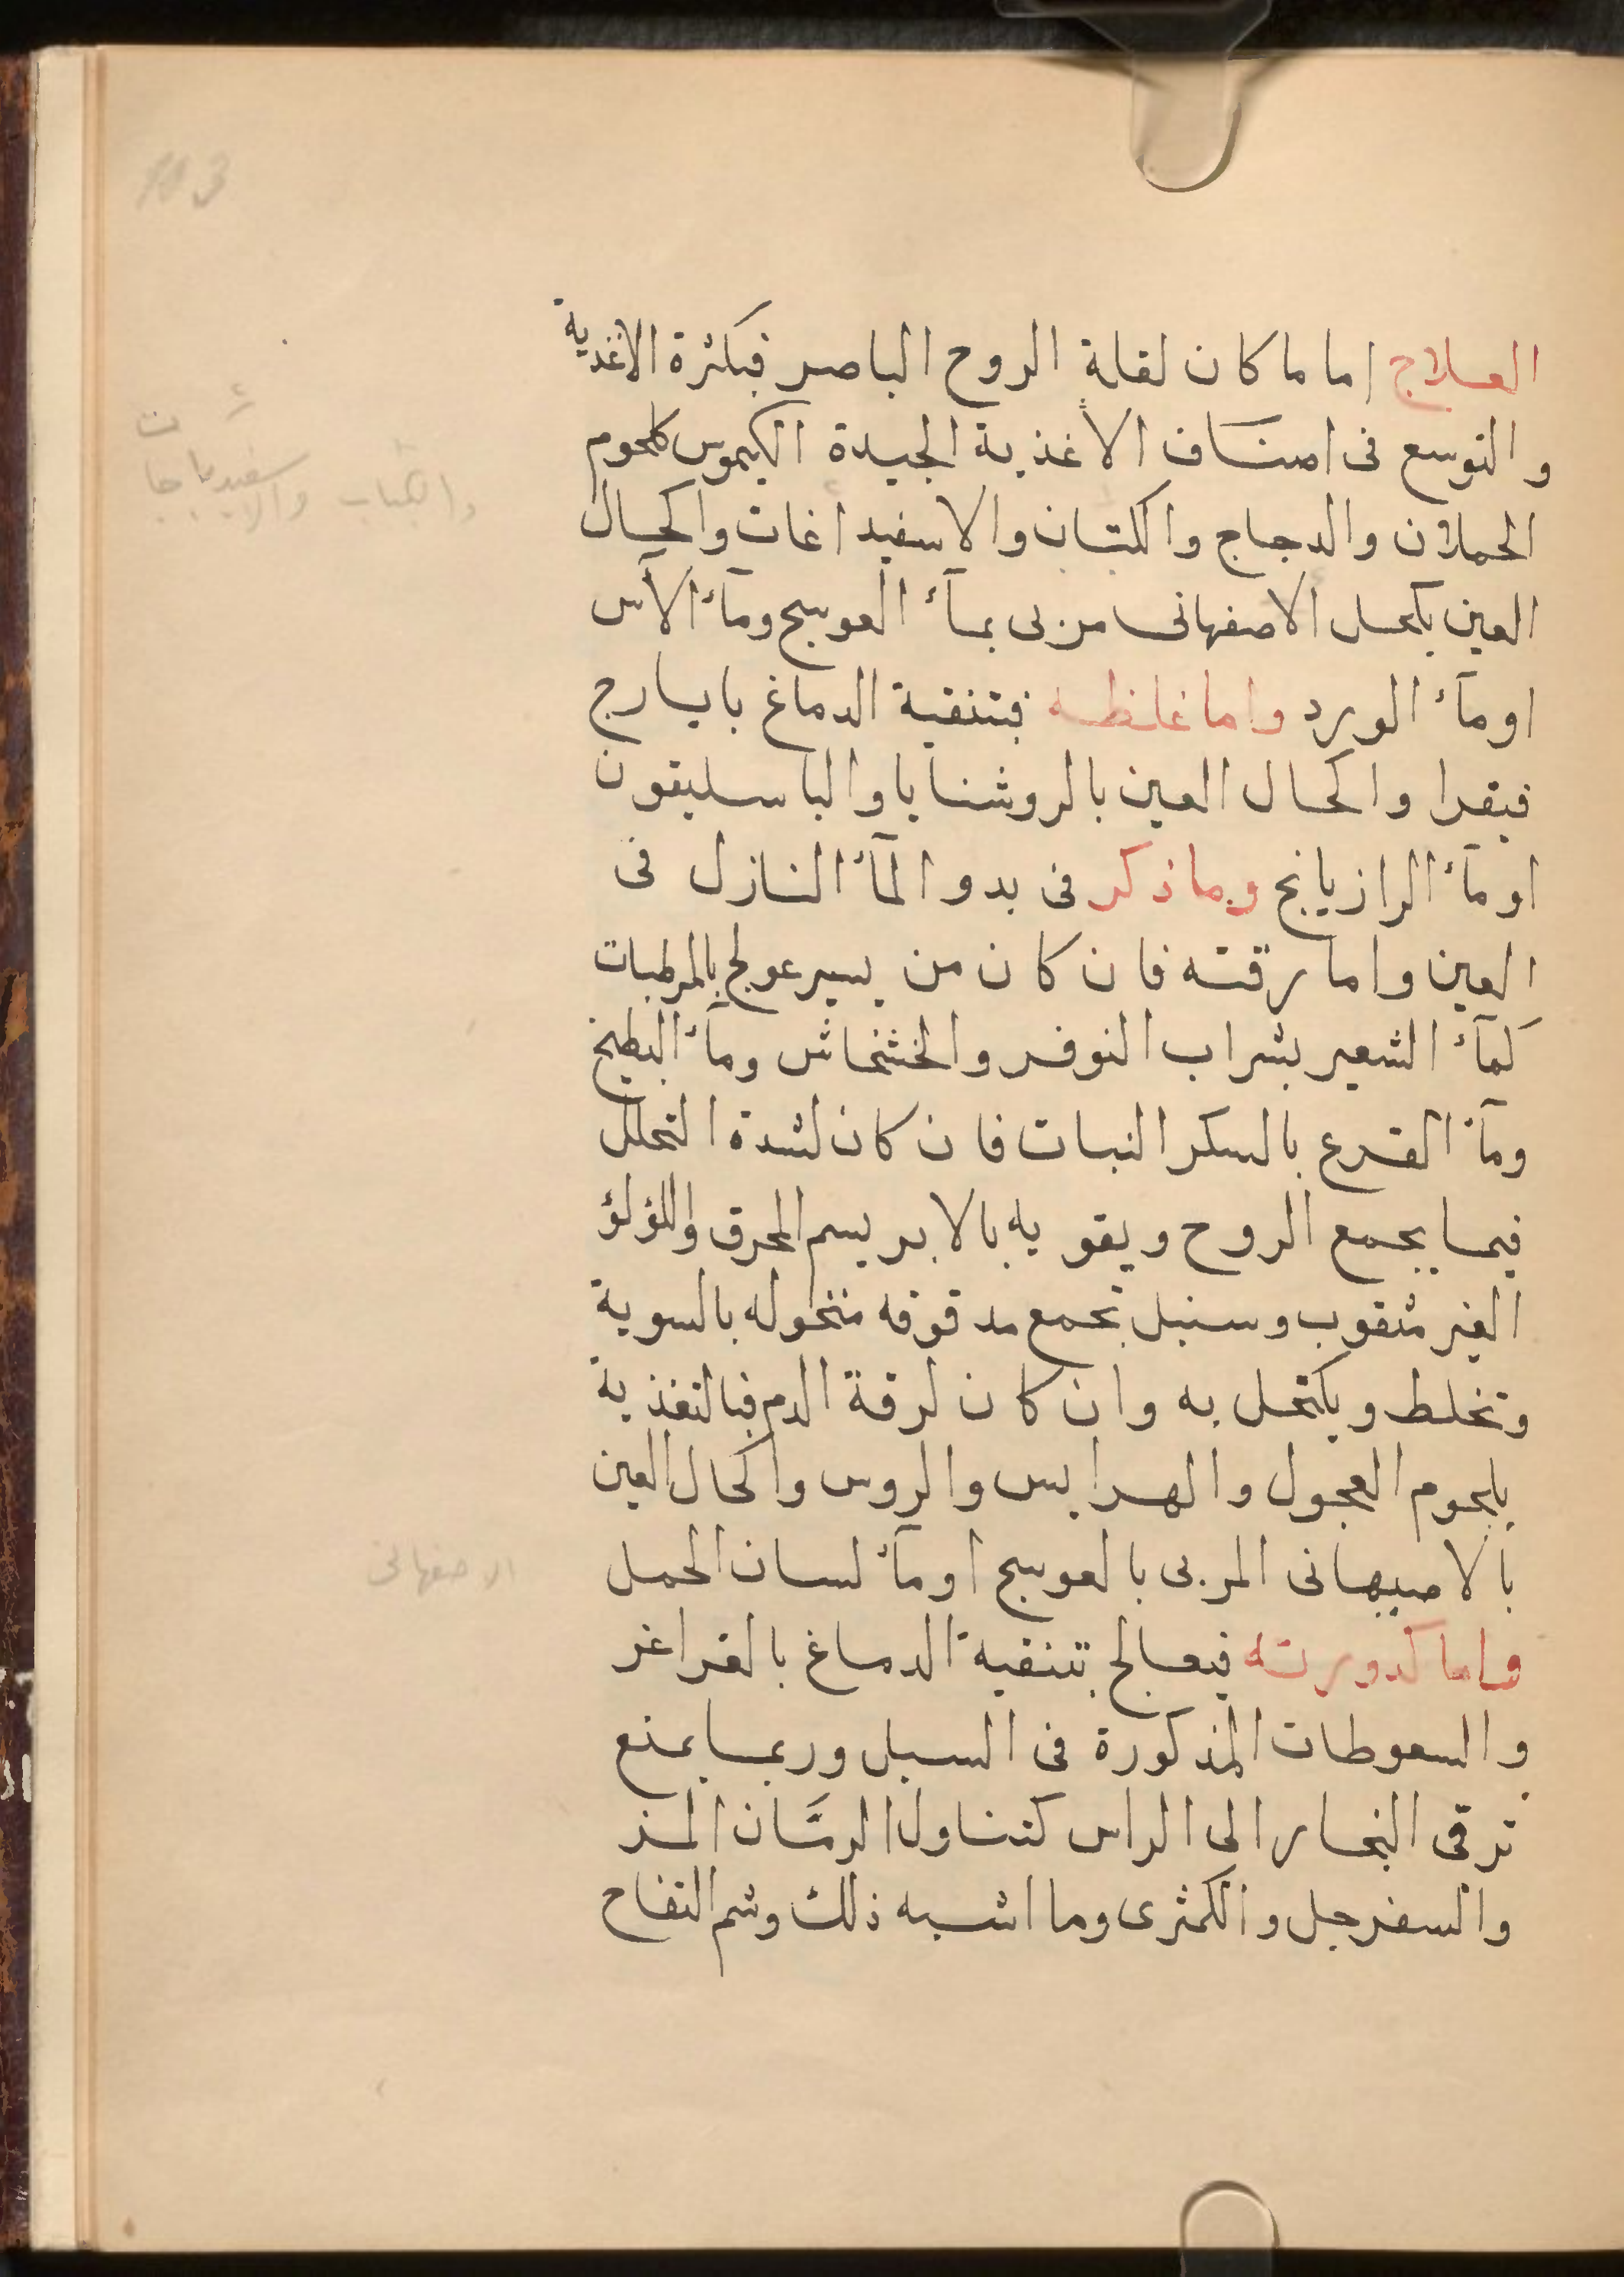 103
العلاج اما ما كان لقلة الروح الباصر فبكثرة الاغذية
والتوسع فى اصناف الأغذية الجيدة الكيموس كلحوم
الحملان والدجاج والكتبان والاسفيداغات واكحال
والكباب والاسفيدباجات
العين بكحل الاصفهانى مربى بمآء العوسج ومآء الآس
او مآء الورد واما غلظه فبتنقية الدماغ بايارج
فيقرا واكحال العين بالروشنايا والباسليقون
او مآء الرازيانج وما ذكر فى بدو المآء النازل فى
العين واما رقته فان كان من يسير عولج بالمرطبات
كمآء الشعير بشراب النوفر والخشخاش ومآء البطيخ
ومآء القرع بالسكر النبات فان كان لشدة التحلل
فيما يجمع الروح ويقويه بالابريسم المحرق واللؤلؤ
الغير مثقوب وسنبل تجمع مدقوقه منخوله بالسوية
وتخلط ويكتحل به وان كان لرقة الدم فبالتغذية
بلحوم العجول والهرايس والروس واكحال العين
بالاصبهانى المربى بالعوسج او مآء لسان الحمل
الاصفهانى
واما كدورته فيعالج بتنقية الدماغ بالغراغر
والسعوطات المذكورة فى السبل وربما يمنع
ترقى البخار الى الراس كتناول الرمّان المز
والسفرجل والكمثرى وما اشبه ذلك وشم التفاح